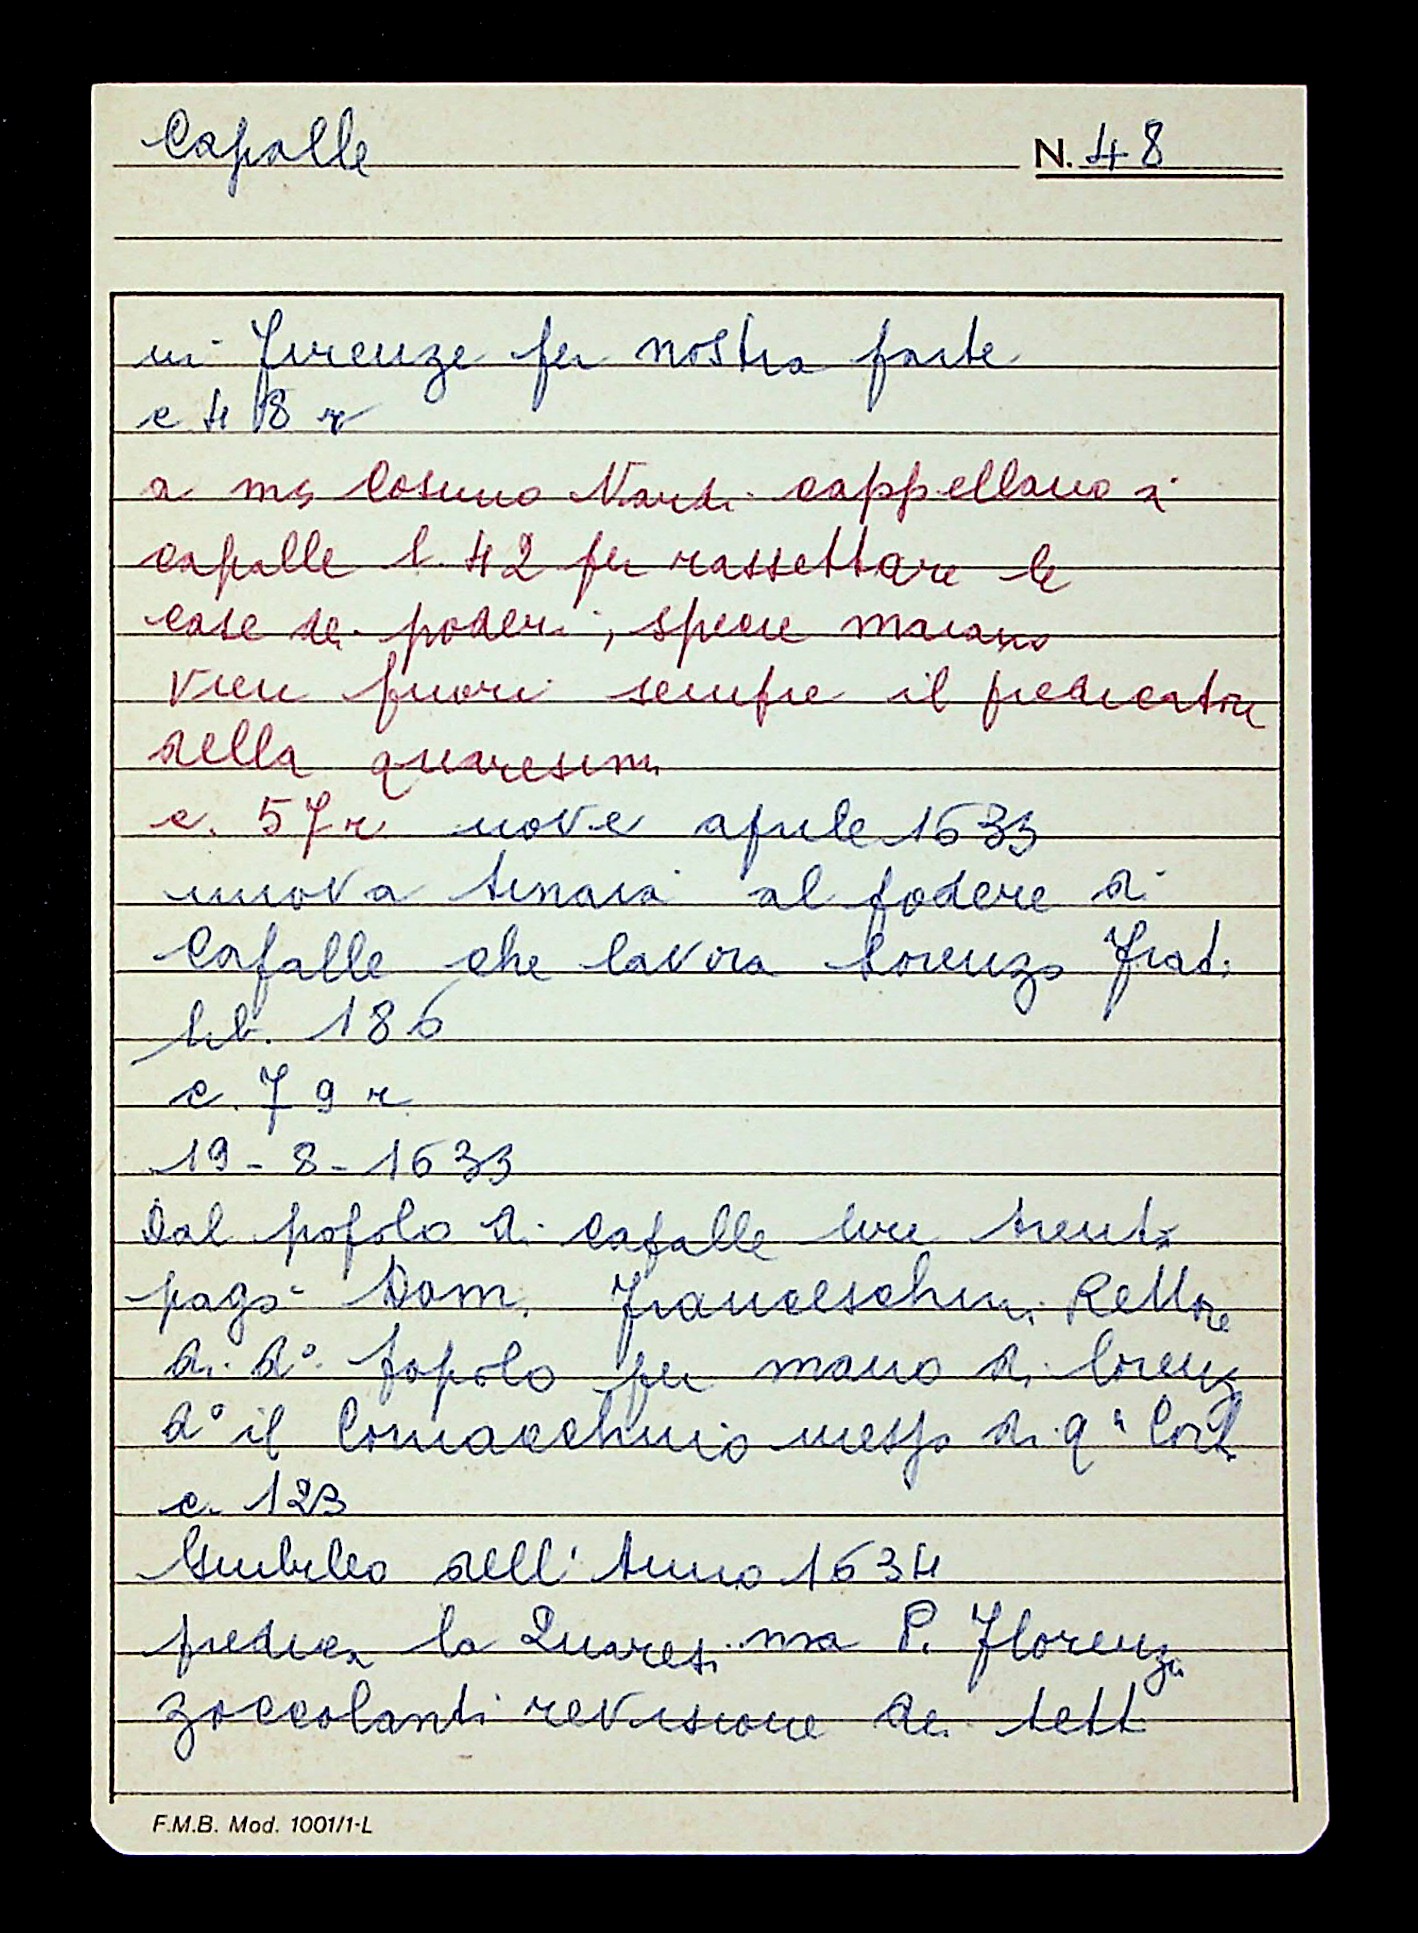 Capalle
N. 48
in Firenze per nostra parte
c 48 r
a ms Cosimo Nardi cappellano a
capalle l. 42 per rassettare le
case dei poderi, specie
vien fuori sempre il predicatore
della quaresima
c. 57 r nove aprile 1633
nuova tinaia al podere di
Capalle che lavora Lorenzo Frati
lib. 186
c. 79 r
19-8-1633
Dal popolo di Capalle lire trenta
pagò Dom. Franceschini Rettore
di dº popolo per mano di Lorenz
dº il Cornacchino messo di qª
c. 123
Giubileo dell'Anno 1634
predica la Quaresima P. Florenzi
Zoccolanti revisione dei tetti
F.M.B. Mod. 1001/1-L